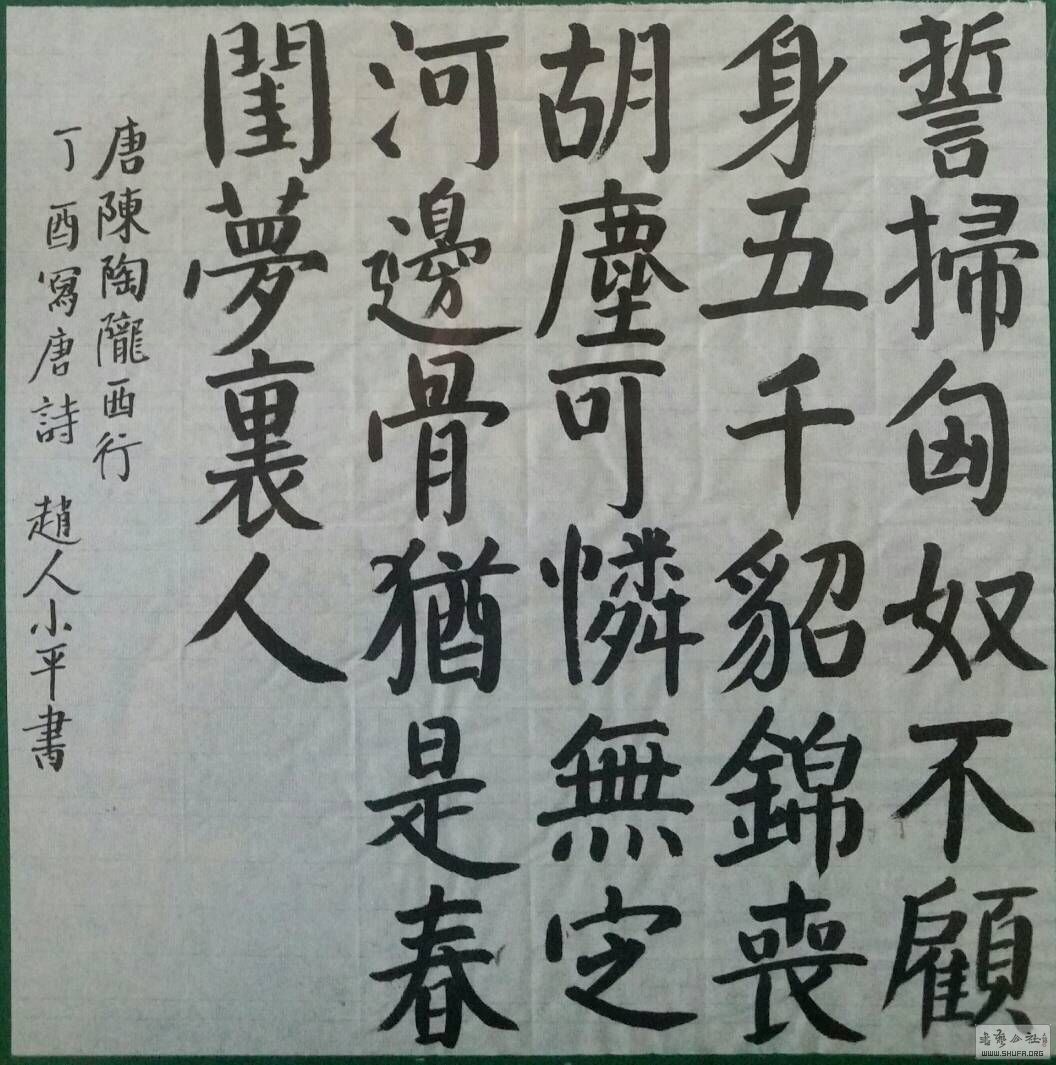 誓掃匈奴不顧
身五千貂錦喪
胡塵可憐無定
河邊骨猶是春
閨夢裏人
唐陳陶隴西行
丁酉寫唐詩 趙人小平書
WWW.SHUFA.ORG